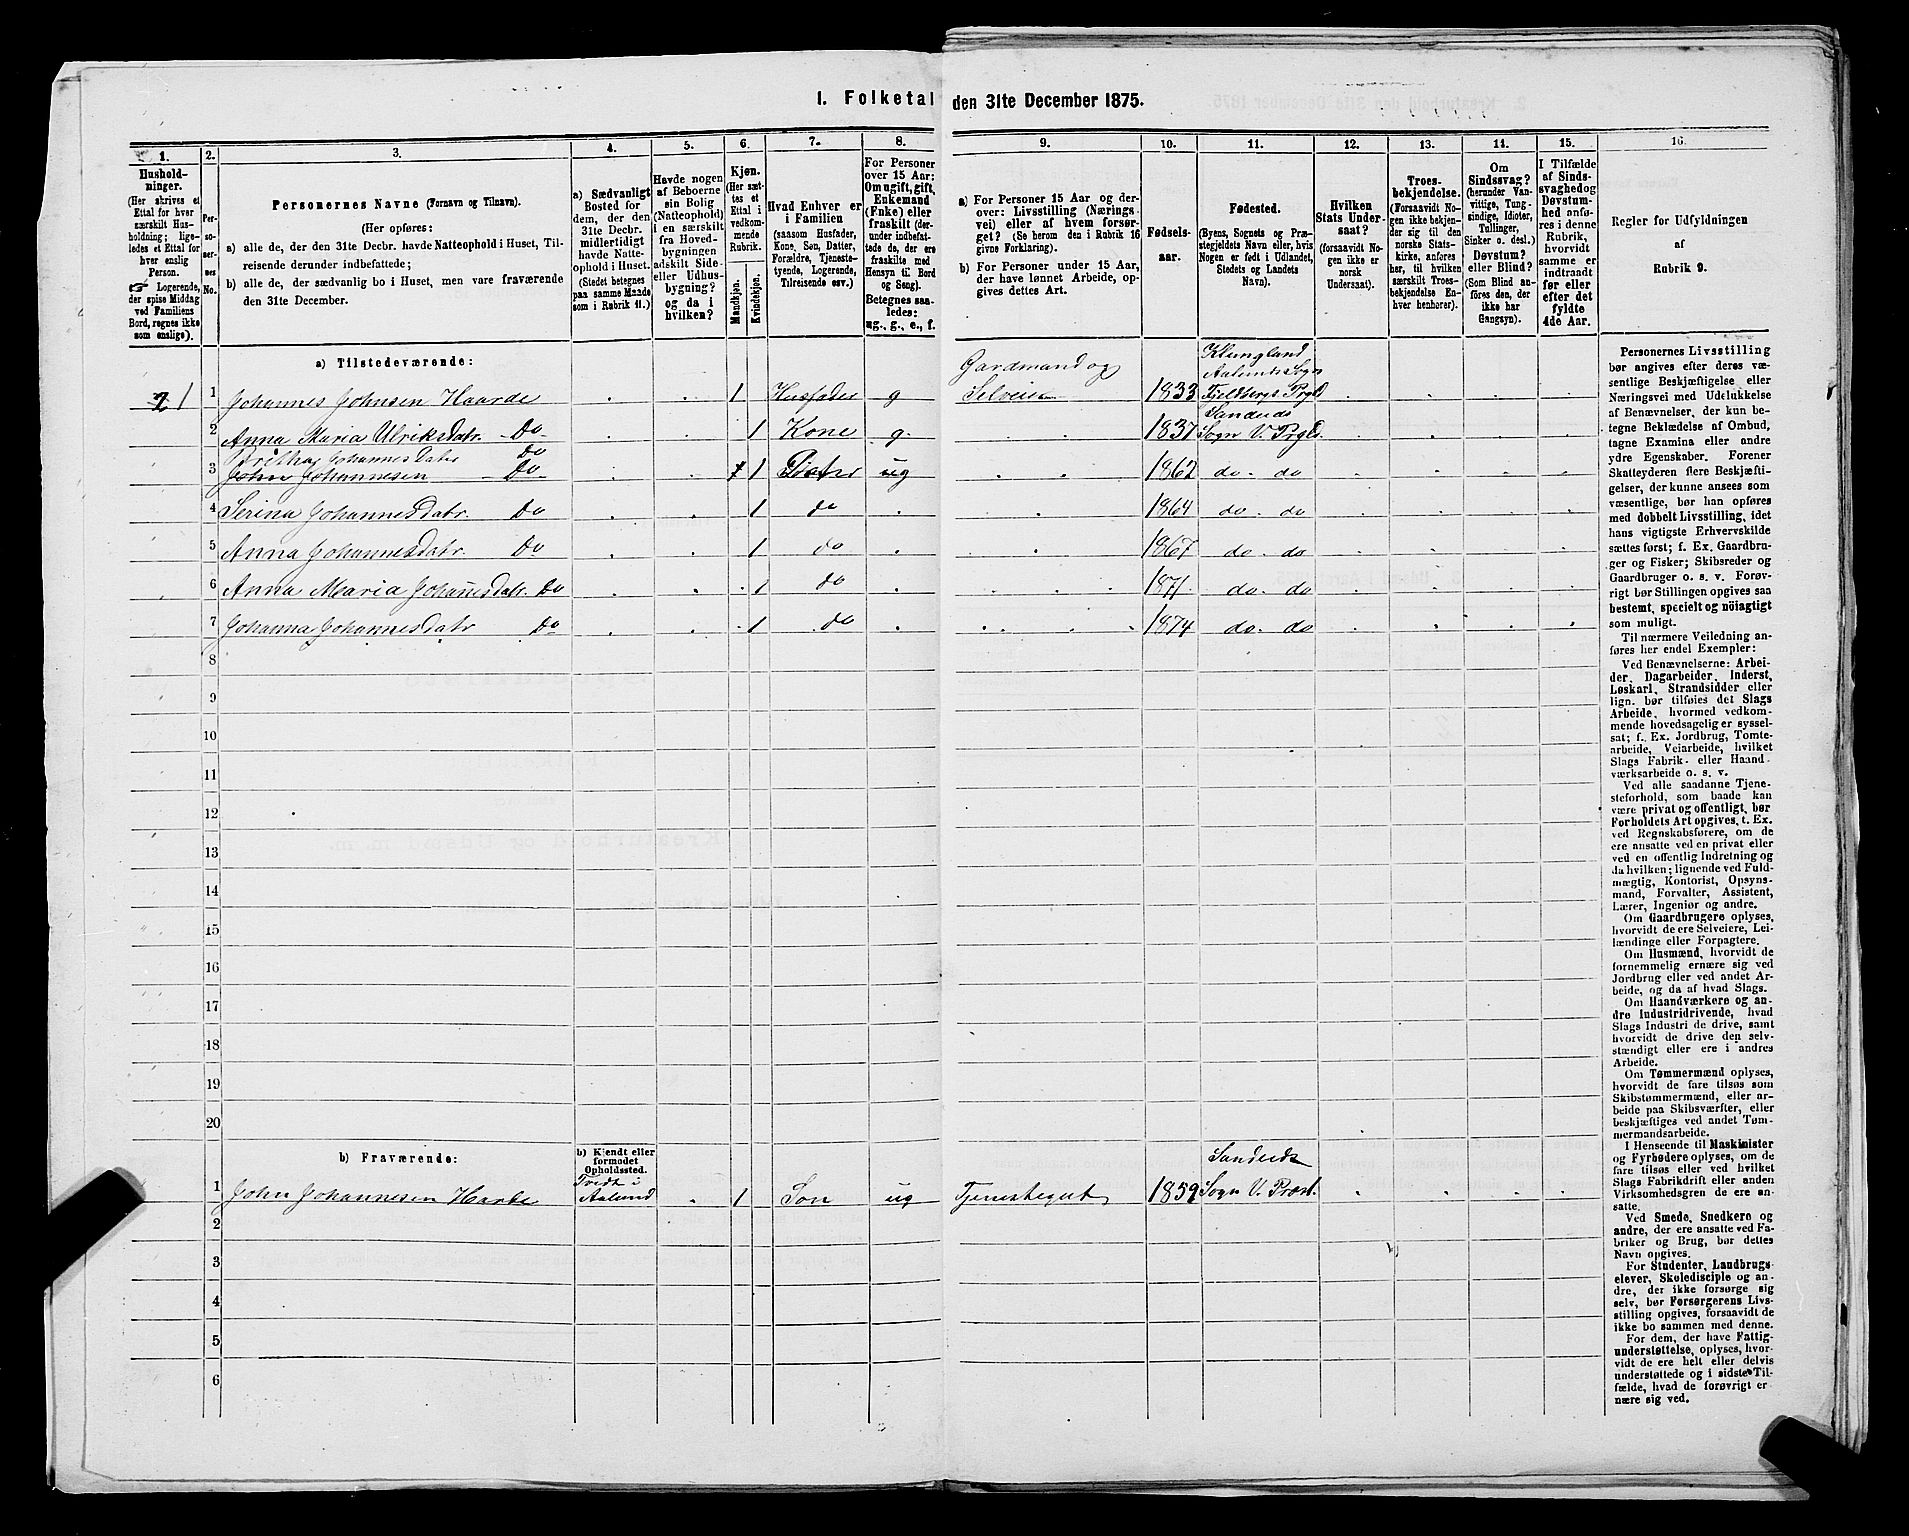 I. Folketal den 31te December 1875.
1. 2. 3. 4. 5. 6. 7. 8. 9. 10. 11. 12. 13. 14. 15. 16.
Hushold-
ninger.
(Her skrives et
Ettal for hver
særskilt Hus-
holdning; lige-
ledes et Ettal for
hver enslig
Person.
☞ Logerende,
der spise Middag
ved Familiens
Bord, regnes ikke
som enslige).
Per-
so-
ner-
nes
No.
Personernes Navne (Fornavn og Tilnavn).
(Her opføres:
a) alle de, der den 31te Decbr. havde Natteophold i Huset, Til-
reisende derunder indbefattede;
b) alle de, der sædvanlig bo i Huset, men vare fraværende
den 31te December.
a) Sædvanligt
Bosted for
dem, der den
31te Decbr.
midlertidigt
havde Natte-
ophold i Huset.
(Stedet betegnes
paa samme Maade
som i Rubrik 11.)
Havde nogen
af Beboerne
sin Bolig
(Natteophold)
i en særskilt
fra Hoved-
bygningen
adskilt Side-
eller Udhus-
bygning?
og da i
hvilken?
Kjøn.
(Her sæt-
tes et
Ettal i
vedkom-
mende
Rubrik.
Mandkjøn.
Kvindekjøn.
Hvad Enhver er
i Familien
(saasom Husfader,
Kone, Søn, Datter,
Forældre, Tjeneste-
tyende, Logerende,
Tilreisende osv.)
For Personer
over 15 Aar:
Om ugift, gift,
Enkemand
(Enke) eller
fraskilt (der-
under indbefat-
tede de, der ere
fraskilte med
Hensyn til Bord
og Seng).
Betegnes saa-
ledes:
ug., g., e., f.
a) For Personer 15 Aar og der-
over: Livsstilling (Nærings-
vei) eller af hvem forsør-
get? (Se herom den i Rubrik 16
givne Forklaring).
b) For Personer under 15 Aar,
der have lønnet Arbeide, op-
gives dettes Art.
Fødsels-
aar.
Fødested.
(Byens, Sognets og Præ-
stegjeldets Navn eller, hvis
Nogen er født i Udlandet,
Stedets og Landets
Navn).
Hvilken
Stats Under-
saat?
(forsaavidt No-
gen ikke er
norsk
Undersaat).
Troes-
bekjendelse.
(Forsaavidt No-
gen ikke bekjen-
der sig til den
norske Stats-
kirke, anføres
her, til hvilken
særskilt Troes-
bekjendelse En-
hver henhører).
Om
Sindssvag?
(herunder Van-
vittige, Tung-
sindige, Idioter,
Tullinger,
Sinker o. desl.)
Døvstum?
eller Blind?
(Som Blind an-
føres den, der
ikke har
Gangsyn).
I Tilfælde
af Sinds-
svaghed og
Døvstum-
hed anfø-
res i denne
Rubrik,
hvorvidt
samme er
indtraadt
før eller
efter det
fyldte
4de Aar.
Regler for Udfyldningen
af
Rubrik 9.
a) Tilstedeværende:
1 1 Johannes Johnsen Haarde 1 Husfader g Gardmand og Selveier 1833 Klungland Aalunds Sogn Fjeldbergs Prgld
2 Anna Maria Ulriksdatr. Do 1 Kone g. 1837 Sandeids Sogn V. Prgld.
Britha Johannes Dater Do
3 John Johannesen Do 1 1 Dater ug 1862 do. do
4 Serina Johannesdatr. Do 1 do 1864 do. do
5 Anna Johannesdatr. Do 1 do 1867 do. do
6 Anna Maria Johannesdatr. Do 1 do 1871 do. do
7 Johanna Johannesdatr Do 1 do 1874 do. do
8
9
10
11
12
13
14
15
16
17
18
19
20
b) Fraværende:
b) Kjendt eller
formodet
Opholdssted.
1 John Johannesen Harde Tvedt i Aalund 1 Søn ug Tjenestegut 1859 Sandeids Sogn V. Præst.
2
3
4
5
6
Personernes Livsstilling
bør angives efter deres væ-
sentlige Beskjæftigelse eller
Næringsvei med Udelukkelse
af Benævnelser, der kun be-
tegne Beklædelse af Ombud,
tagne Examina eller andre
ydre Egenskaber. Forener
Skatteyderen flere Beskjæfti-
gelser, der kunne ansees som
væsentlige, bør han opføres
med dobbelt Livsstilling, idet
hans vigtigste Erhvervskilde
sættes først; f. Ex. Gaardbru-
ger og Fisker; Skibsreder og
Gaardbruger o. s. v. Forøv-
rigt bør Stillingen opgives saa
bestemt, specielt og nöiagtigt
som muligt.
Til nærmere Veiledning an-
føres her endel Exempler:
Ved Benævnelserne: Arbei-
der, Dagarbeider, Inderst,
Løskarl, Strandsidder eller
lign. bør tilføies det Slags
Arbeide, hvormed vedkom-
mende hovedsagelig er syssel-
sat; f. Ex. Jordbrug, Tomte-
arbeide, Veiarbeide, hvilket
Slags Fabrik- eller Haand-
værksarbeide o. s. v.
Ved alle saadanne Tjene-
steforhold, som baade kan
være privat og offentligt, bør
Forholdets Art opgives, t. Ex.
ved Regnskabsførere, om de
ere ansatte ved en privat eller
ved en offentlig Indretning og
da hvilken; lignende ved Fuld-
mægtig, Kontorist, Opsyns-
mand, Forvalter, Assistent,
Lærer, Ingeniør og andre.
Om Gaardbrugere oplyses,
hvorvidt de ere Selveiere, Lei-
lændinge eller Forpagtere.
Om Husmænd, hvorvidt de
fornemmelig ernære sig ved
Jordbrug eller ved andet Ar-
beide, og da af hvad Slags.
Om Haandværkere og an-
dre Industridrivende, hvad
Slags Industri de drive, samt
hvorvidt de drive den selv-
stændigt eller ere i andres
Arbeide.
Om Tømmermænd oplyses,
hvorvidt de fare tilsøs som
Skibstømmermænd, eller ar-
beide paa Skibsværfter, eller
beskjæftiges ved andet Tøm-
mermandsarbeide.
I Henseende til Maskinister
og Fyrbødere oplyses, om de
fare tilsøs eller ved hvilket
Slags Fabrikdrift eller anden
Virksomhedsgren de ere an-
satte.
Ved Smede, Snedkere og
andre, der ere ansatte ved Fa-
briker og Brug, bør dettes
Navn opgives.
For Studenter, Landbrugs-
elever, Skoledisciple og an-
dre, der ikke forsørge sig
selv, bør Forsørgerens Livs-
stilling opgives, forsaavidt de
ikke bo sammen med denne.
For dem, der have Fattig-
understøttelse, oplyses, hvor-
vidt de ere helt eller delvis
understøttede og i sidste Til-
fælde, hvad de forøvrigt er-
nære sig ved.